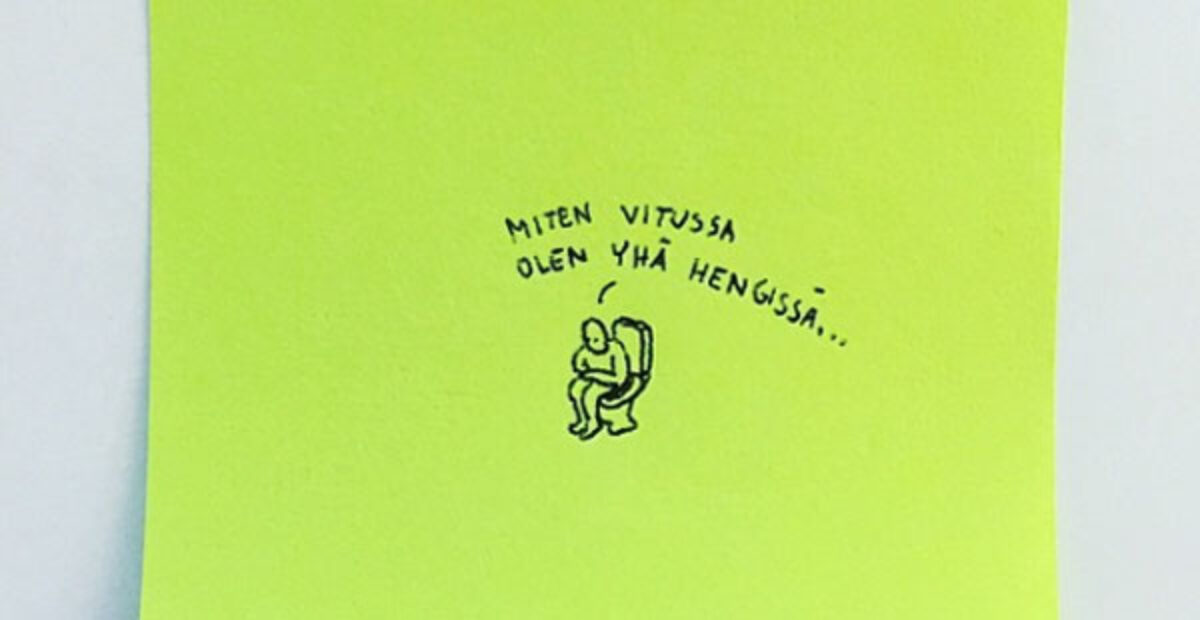 MITEN VITUSSA
OLEN YHÄ HENGISSÄ...